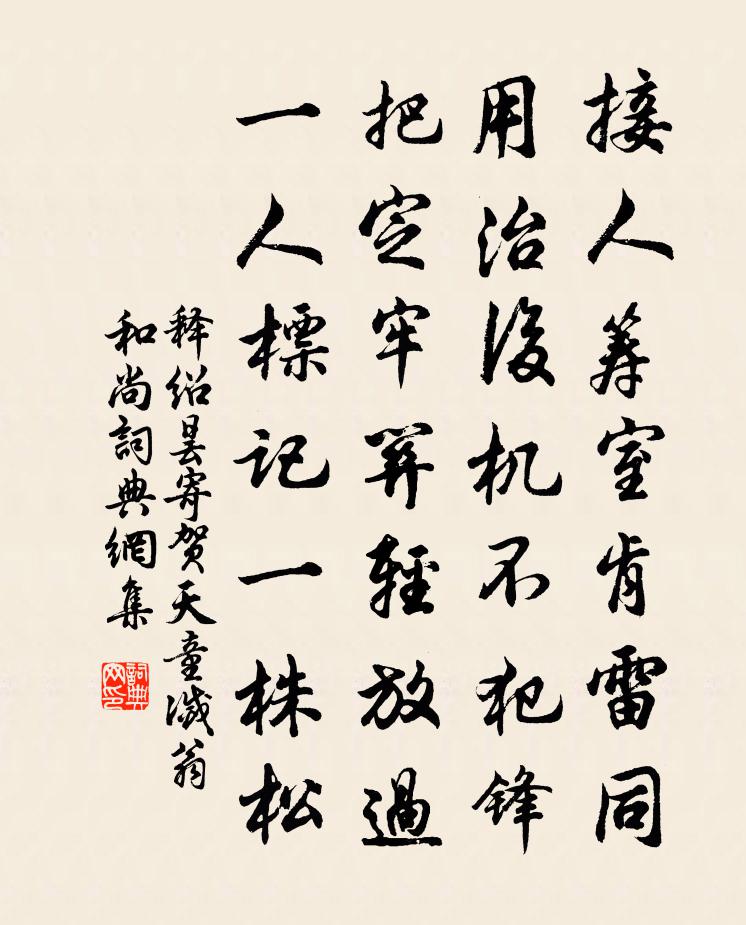 接人筹室肯雷同
用治後机不犯锋
把定牢关輕放過
一人標记一株松
释绍昙寄贺天童滅翁
和尚詞典網集
詞典网印